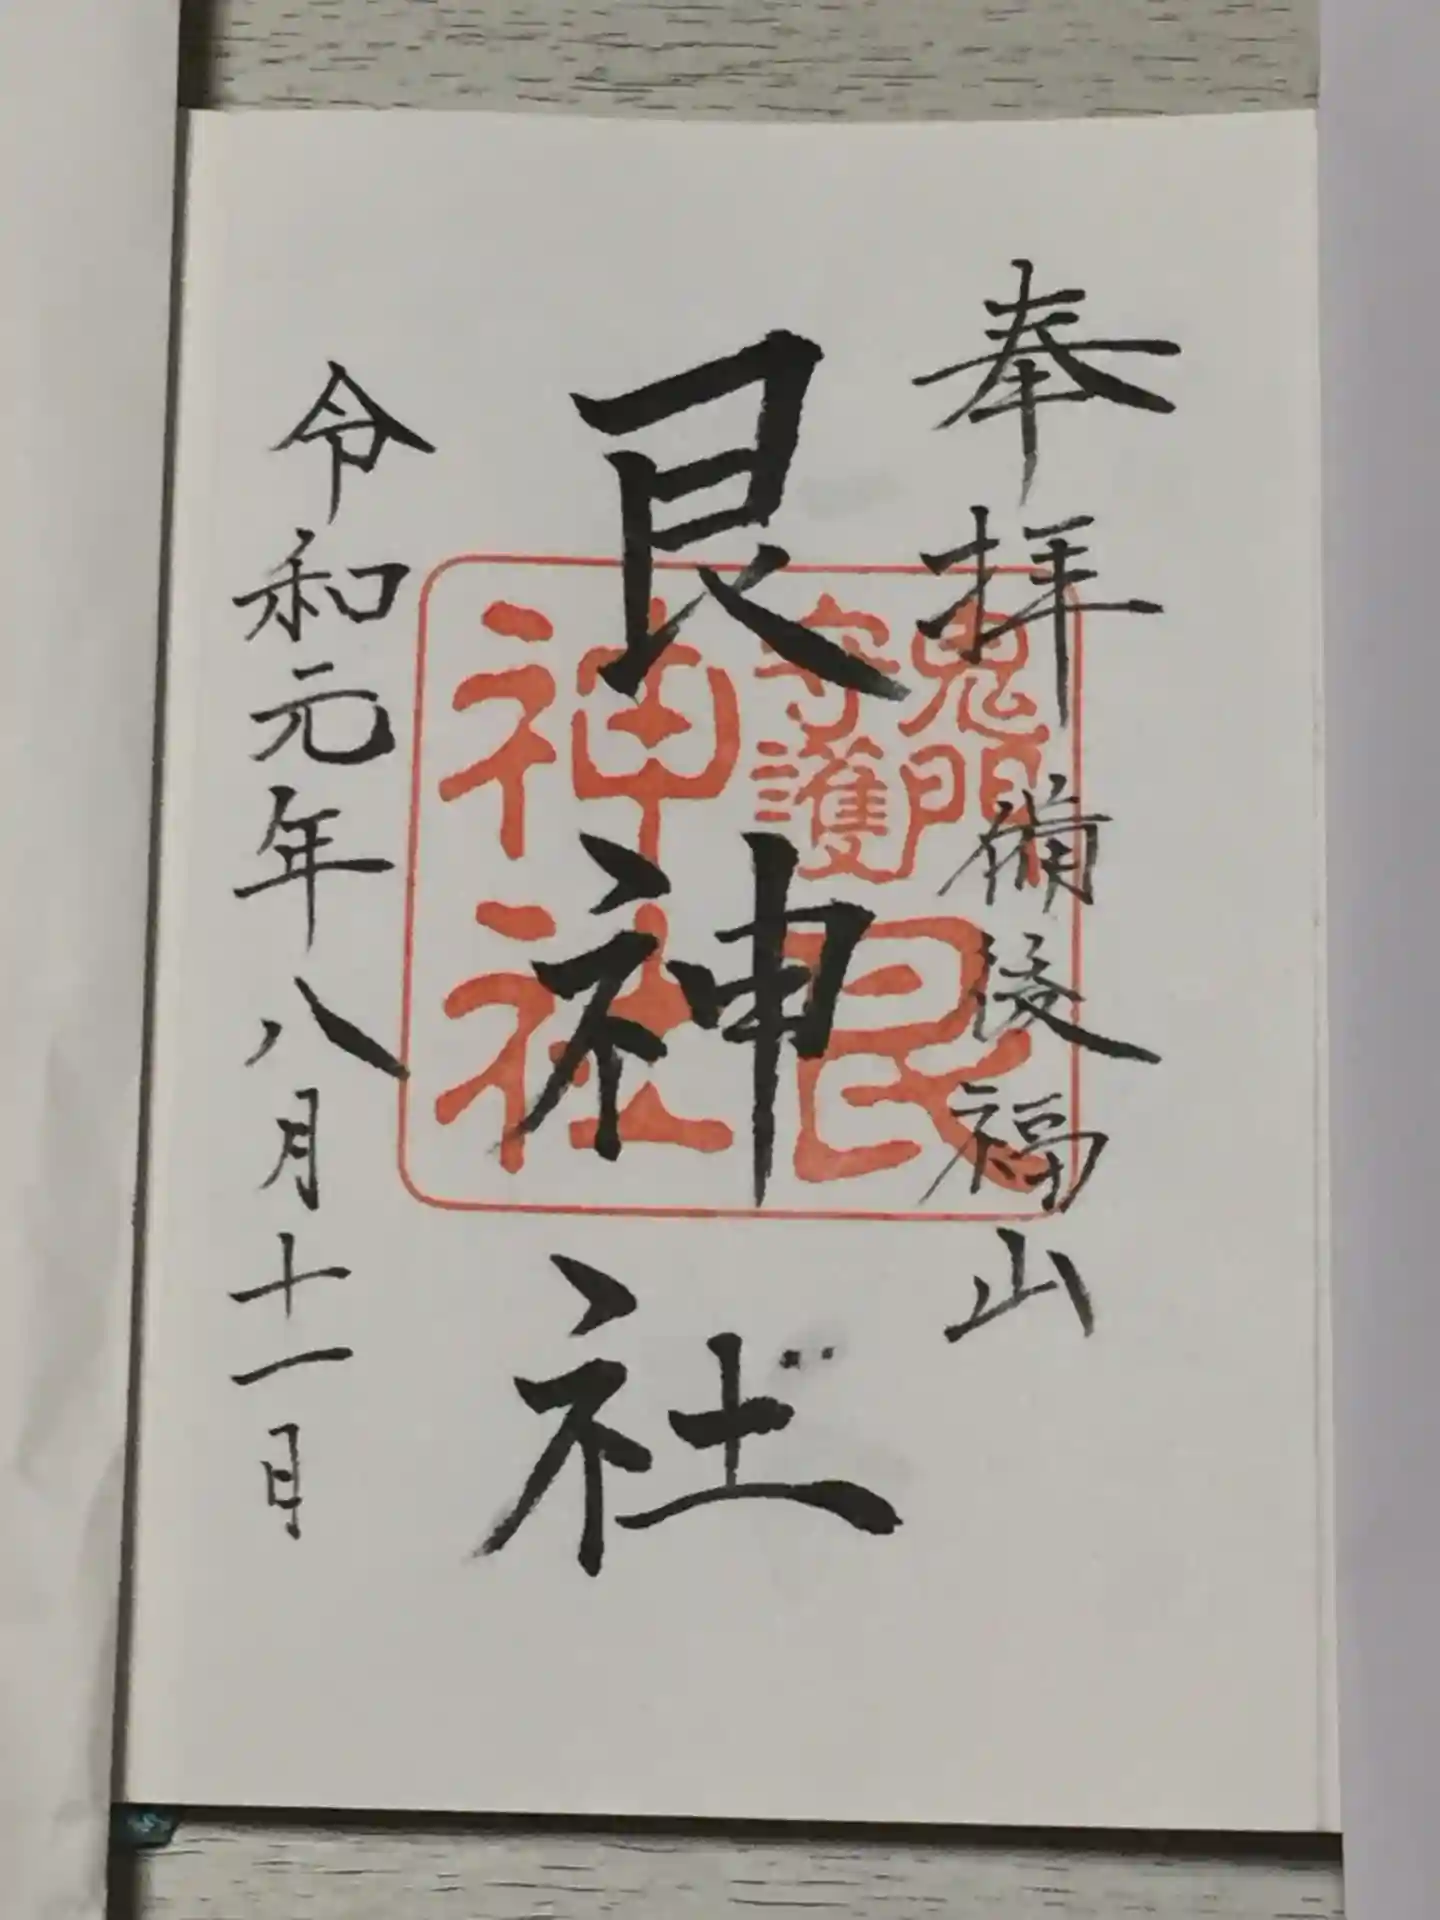 奉拝
備後福山
艮神社
鬼門
守護
艮
神社
令和元年八月十一日